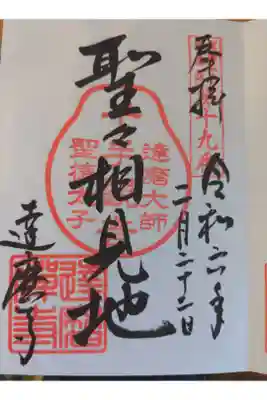 奉拝
令和六年
二月二十二日
聖々相見地
達磨大師
千手
聖徳太子
達磨寺